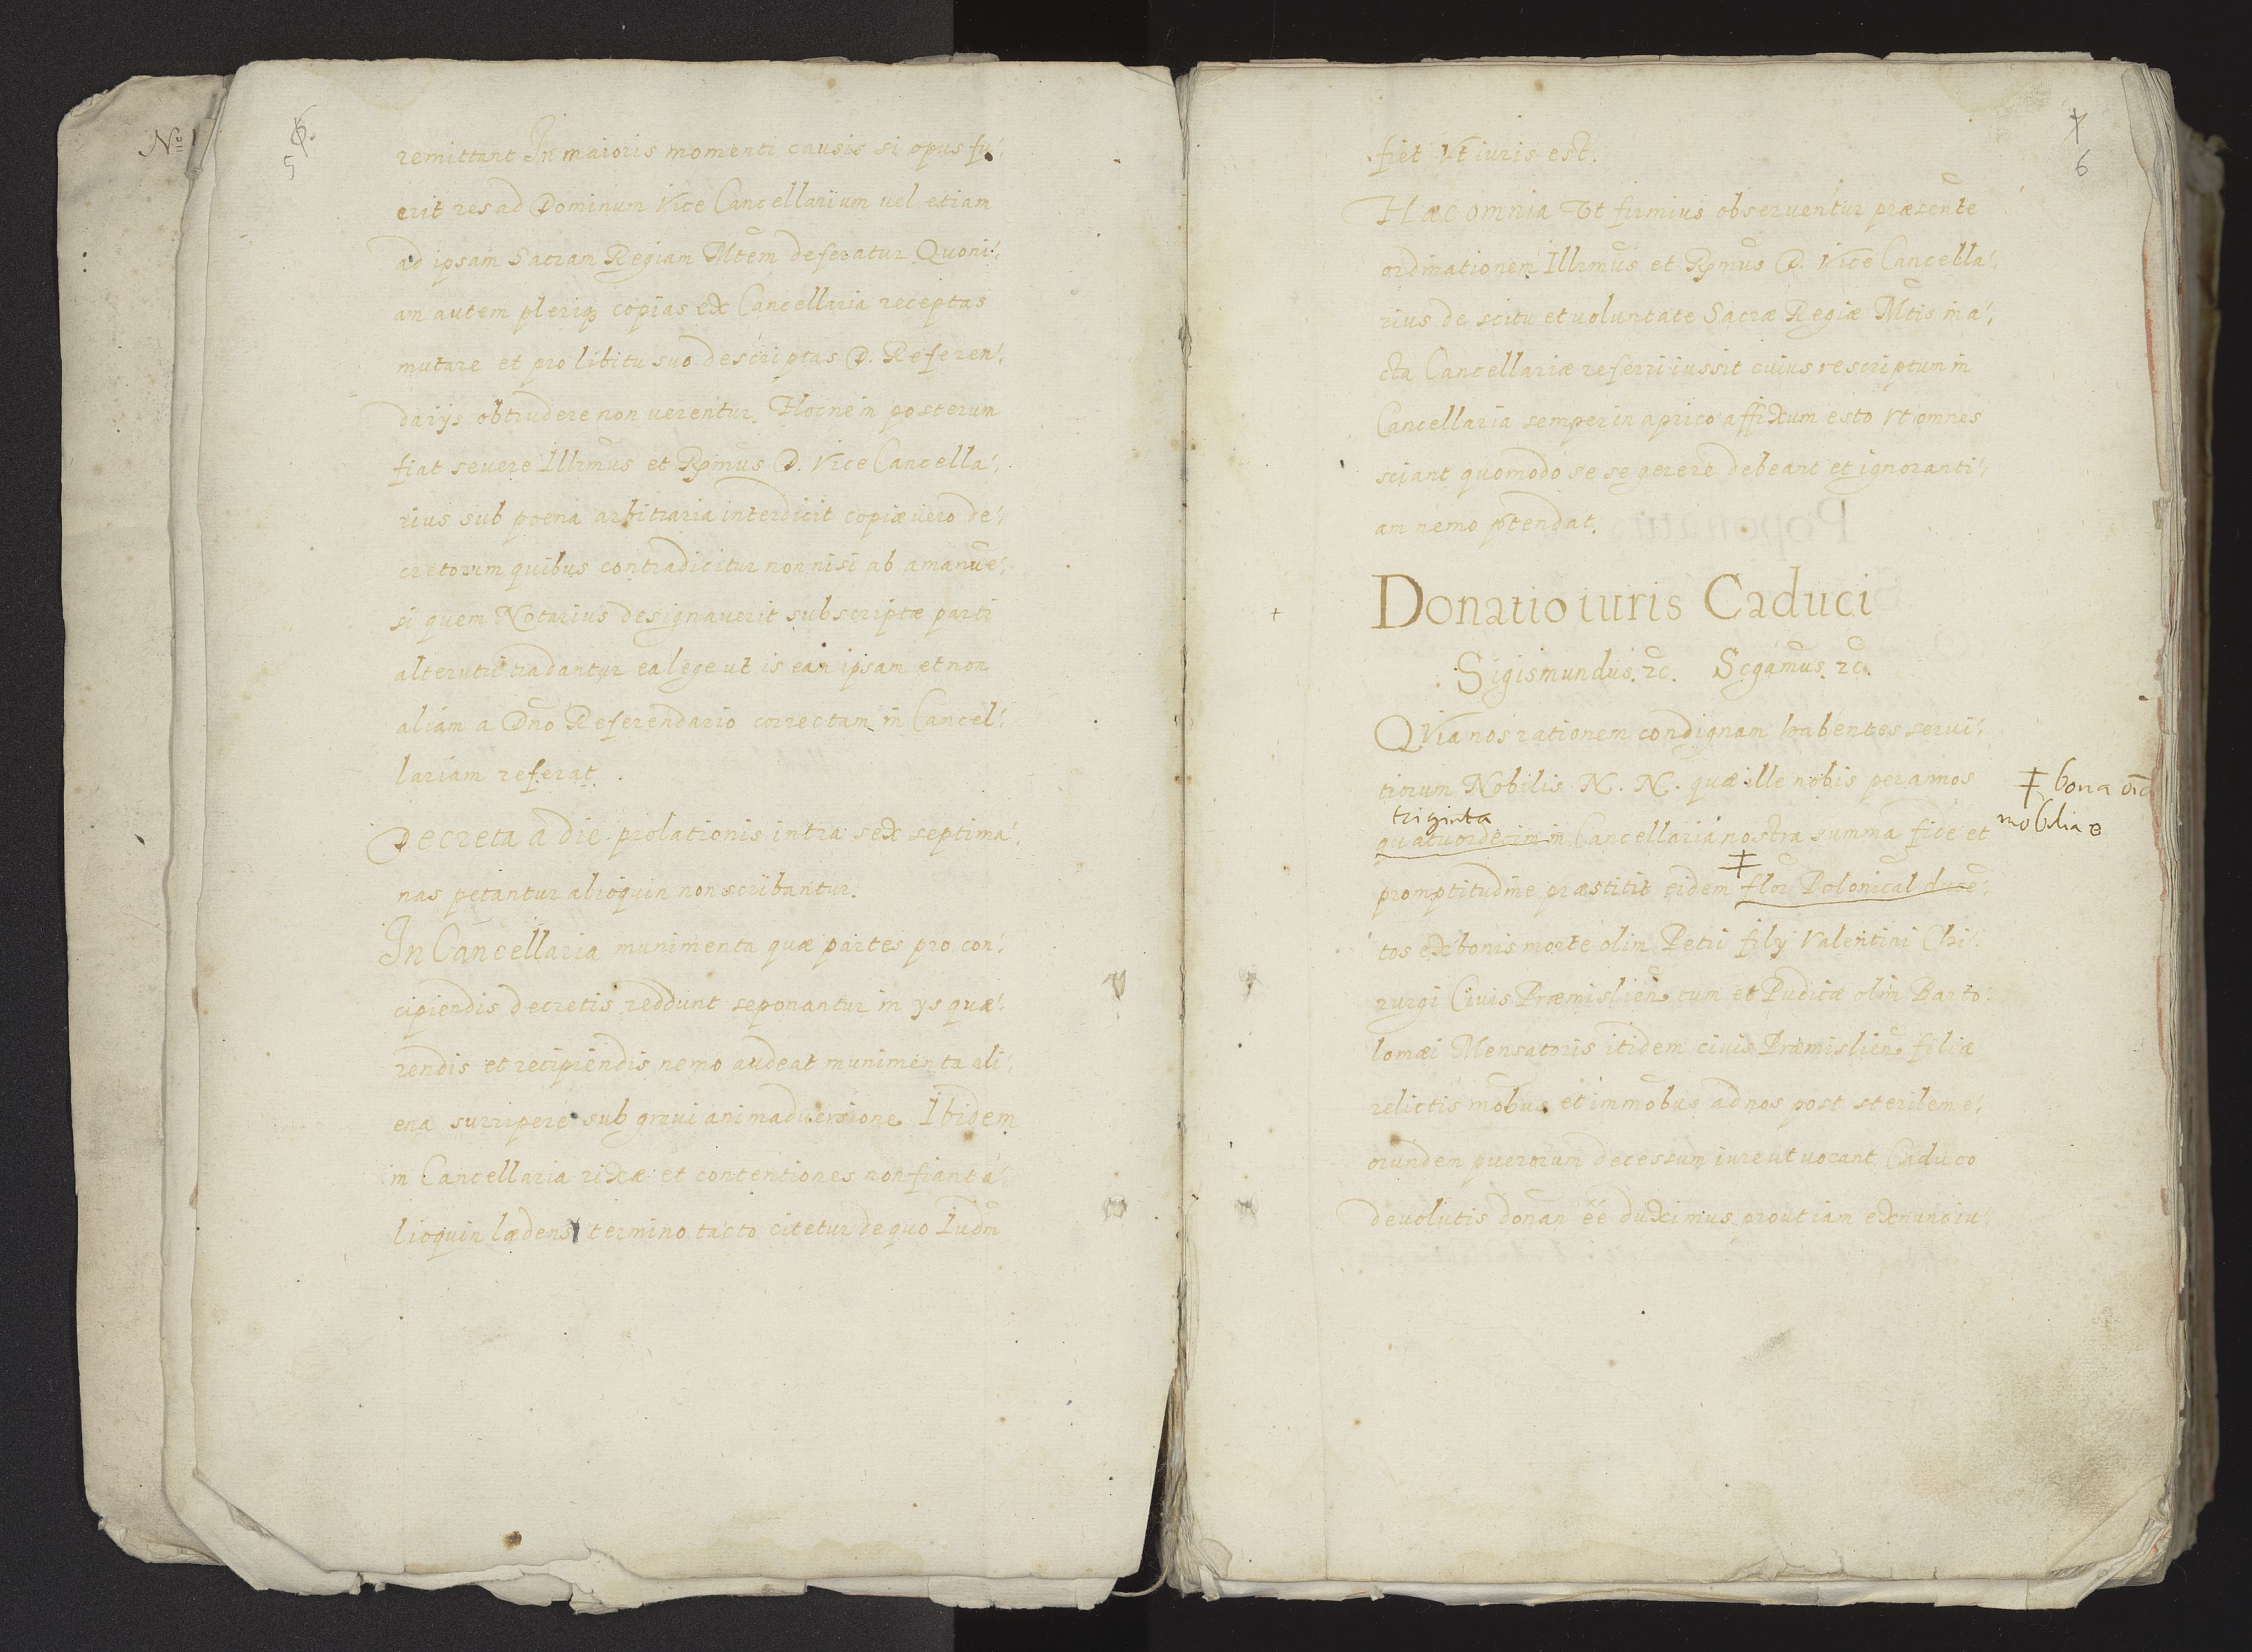 No 1
5
remittant In maioris momenti causis si opus fu
erit res ad Dominum Vice Cancellarium vel etiam
ad ipsam Sacram Regiam Mtem deferatur Quoni
am autem pleriq copias ex Cancellaria receptas
mutare et pro libitu suo descriptas D. Referen
darys obtrudere non uerentur. Hoc ne in posterum
fiat severe Illrmus et Rpmus D. Vice Cancella
rius sub poena arbitraria interdicit copiæ uero de
cretorum quibus contradicitur non nisi ab amanue
si quem Notarius designauerit subscriptæ parti
alterutri tradantur ea lege ut is eam ipsam et non
aliam a Dno Referendario correctam in Cancel
lariam referat.
Decreta a die prolationis intra sex septima
nas petantur alioquin non scribantur.
In Cancellaria munimenta quæ partes pro con
cipiendis decretis reddunt seponantur in ys quæ
rendis et recipiendis nemo audeat munimenta ali
ena surripere sub graui animaduersione Ibidem
in Cancellaria rixæ et contentiones non fiant a
lioquin lædens termino tacto citetur de quo Iudm
6
fiet Vt iuris est.
Hæc omnia Vt firmius obseruentur præsente
ordinationem Illrmus et Rpmus D. Vice Cancella
rius de scitu et uoluntate Sacræ Regiæ Mtis in a
cta Cancellariæ referri iussit cuius rescriptum in
Cancellaria semper in aprico affixum esto Vt omnes
sciant quomodo se se gerere debeant et ignoranti
am nemo ptendat.
Donatio iuris Caduci
Sigismundus. &c. Scgamus. &c.
QVia nos rationem condignam habentes serui
tiorum Nobilis N. N. quæ ille nobis per annos
triginta
quatuordecim in Cancellaria nostra summa fide et
‡ bona
mobilia
promptitudine præstitit eidem ‡ flor Polonical duce
tos ex bonis morte olim Petri fily Valentini Chi
rurgi Ciuis Præmislien cum et Pudicæ olim Barto
lomæi Mensatoris itidem ciuis Præmislien filiæ
relictis mobus et immobus ad nos post sterilem e
orunden puerorum decessum iure ut uocant Caduco
deuolutis donan ee duximus prout iam ex nunc iu